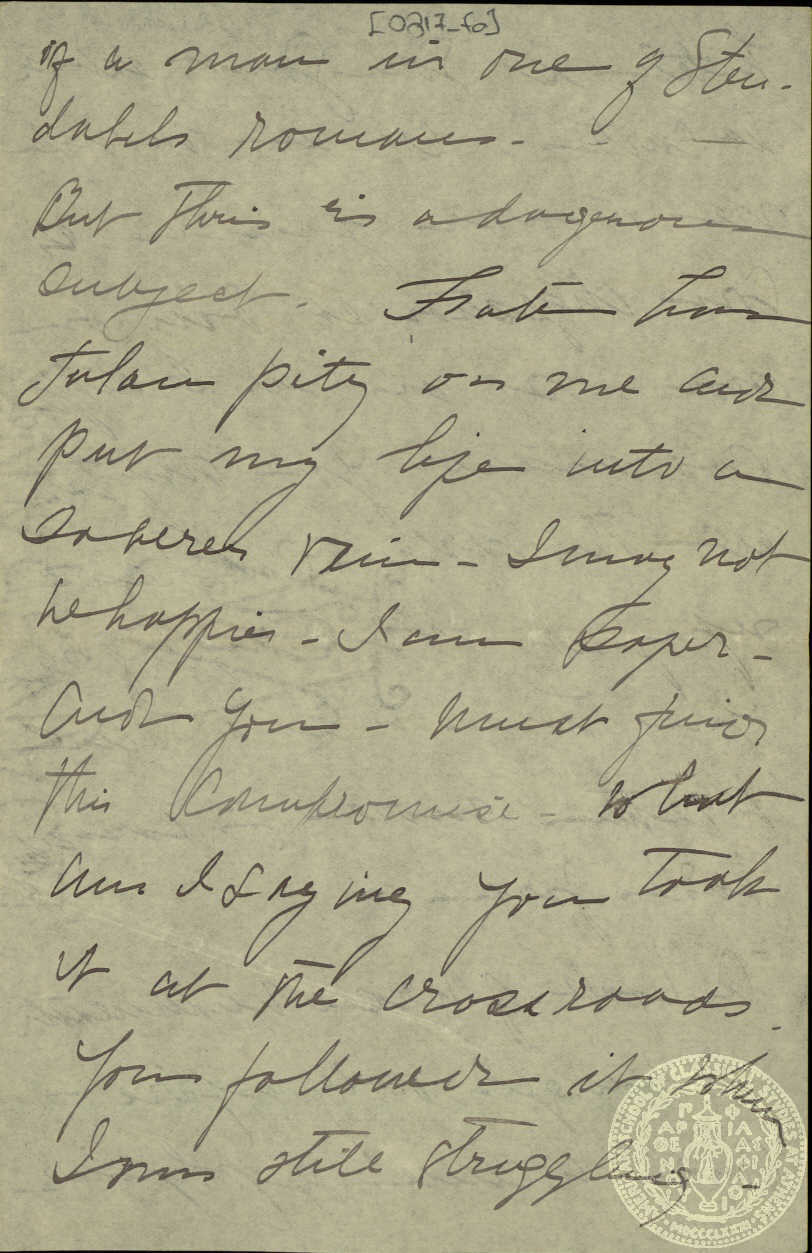 [0317_fo]
if a man in one of Sten-
dahls romans -
But this is a dangerous
subject. Fate has
taken pity on me and
put my life into a
soberer vein - I may not
be happier - I am
and you - must find
this Compromise - What
am I saying you took
it at the cross roads.
You followed it when
I was still struggling -
SCHOOL OF CLASSICAL STUDIES AT
ΠΑΡ ΦΙΛΑΣ
MDCCCLXXXI